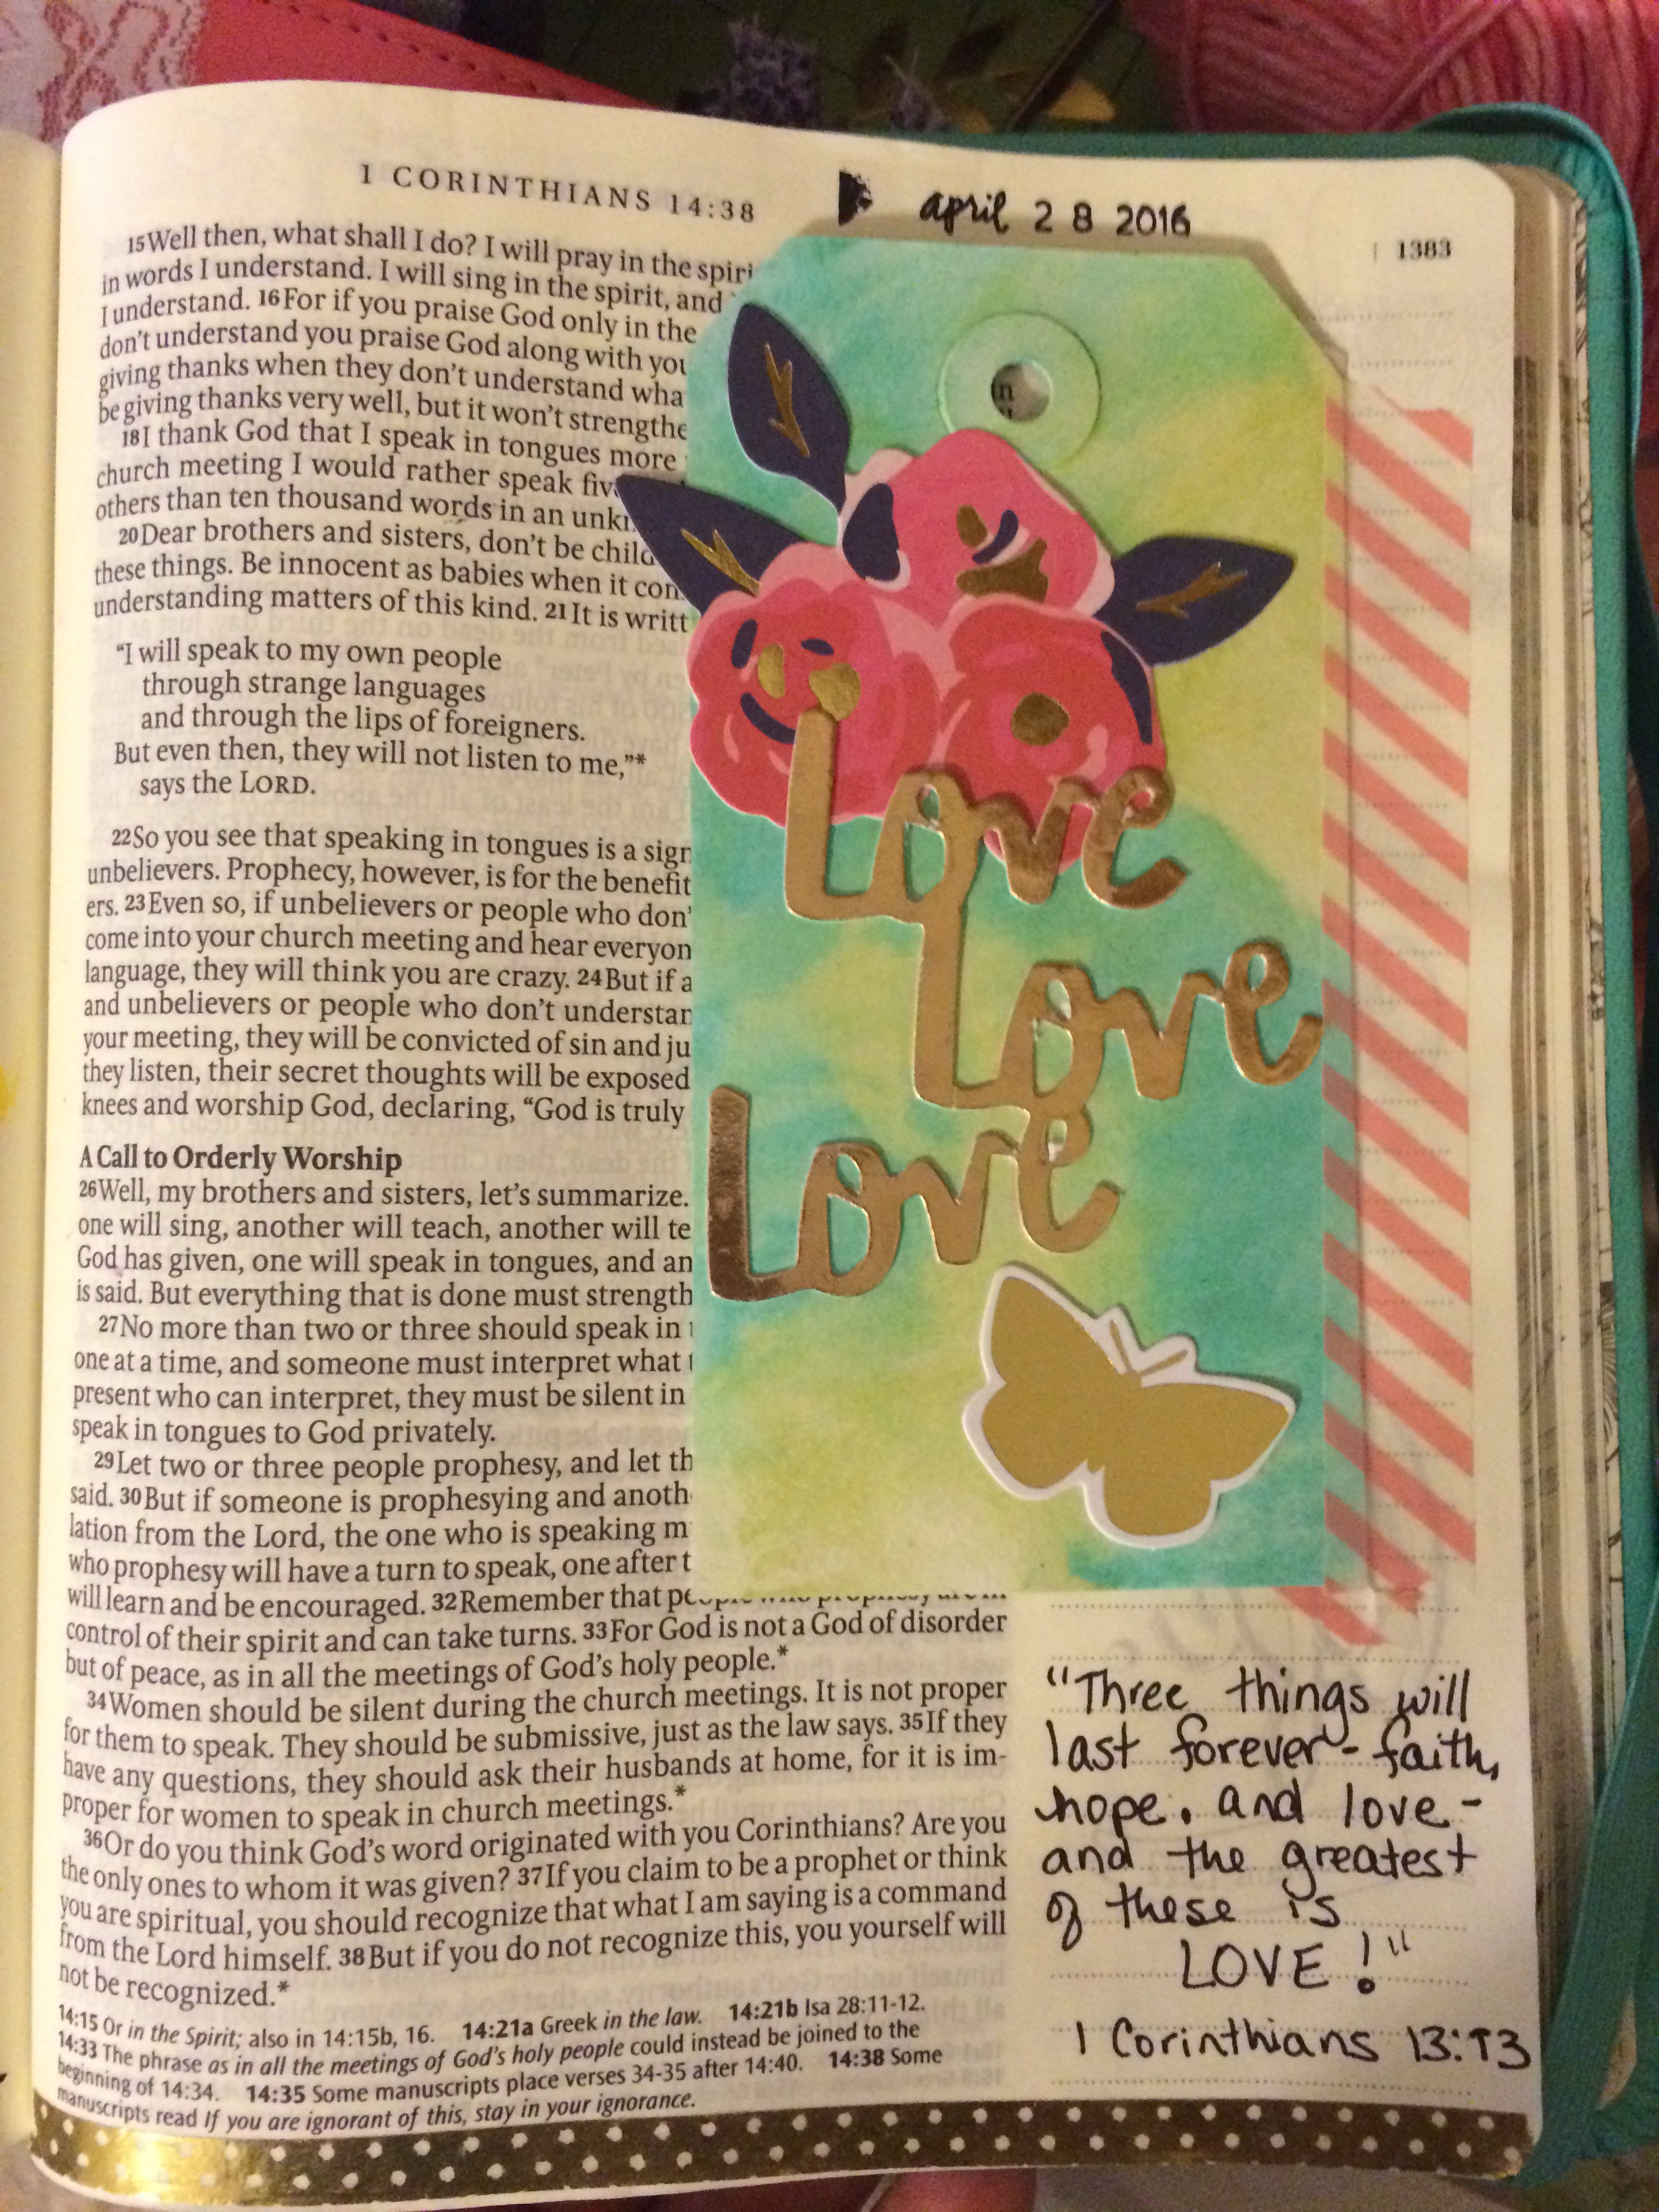 1 CORINTHIANS 14:38
april 28 2016
1383
15Well then, what shall I do? I will pray in the
in words I understand. I will sing in the spirit, and
I understand. 16For if you praise God only in the
don't understand you praise God along with
giving thanks when they don't understand
be giving thanks very well, but it won't
18I thank God that I speak in tongues more
church meeting I would rather speak
others than ten thousand words in an
20Dear brothers and sisters, don't be
these things. Be innocent as babies when it
understanding matters of this kind. 21It is
“I will speak to my own people
through strange languages
and through the lips of foreigners.
But even then, they will not listen to me,”*
says the LORD.
22So you see that speaking in tongues is a
unbelievers. Prophecy, however, is for the benefit
ers. 23Even so, if unbelievers or people who
come into your church meeting and hear
language, they will think you are crazy. 24But if a
and unbelievers or people who don't
your meeting, they will be convicted of sin and
they listen, their secret thoughts will be exposed
knees and worship God, declaring, “God is truly
A Call to Orderly Worship
26Well, my brothers and sisters, let's summarize.
one will sing, another will teach, another will te
God has given, one will speak in tongues, and an
is said. But everything that is done must strength
27No more than two or three should speak in
one at a time, and someone must interpret what
present who can interpret, they must be silent in
speak in tongues to God privately.
29Let two or three people prophesy, and let th
said. 30But if someone is prophesying and anoth
lation from the Lord, the one who is speaking m
who prophesy will have a turn to speak, one after t
will learn and be encouraged. 32Remember that
control of their spirit and can take turns. 33For God is not a God of disorder
but of peace, as in all the meetings of God's holy people.*
34Women should be silent during the church meetings. It is not proper
for them to speak. They should be submissive, just as the law says. 35If they
have any questions, they should ask their husbands at home, for it is im-
proper for women to speak in church meetings.*
36Or do you think God's word originated with you Corinthians? Are you
the only ones to whom it was given? 37If you claim to be a prophet or think
you are spiritual, you should recognize that what I am saying is a command
from the Lord himself. 38But if you do not recognize this, you yourself will
not be recognized.*
14:15 Or in the Spirit; also in 14:15b, 16. 14:21a Greek in the law. 14:21b Isa 28:11-12.
14:33 The phrase as in all the meetings of God's holy people could instead be joined to the
beginning of 14:34. 14:35 Some manuscripts place verses 34-35 after 14:40. 14:38 Some
manuscripts read If you are ignorant of this, stay in your ignorance.
in
Love
Love
Love
“Three things will
last forever - faith,
hope, and love -
and the greatest
of these is
LOVE!”
1 Corinthians 13:13